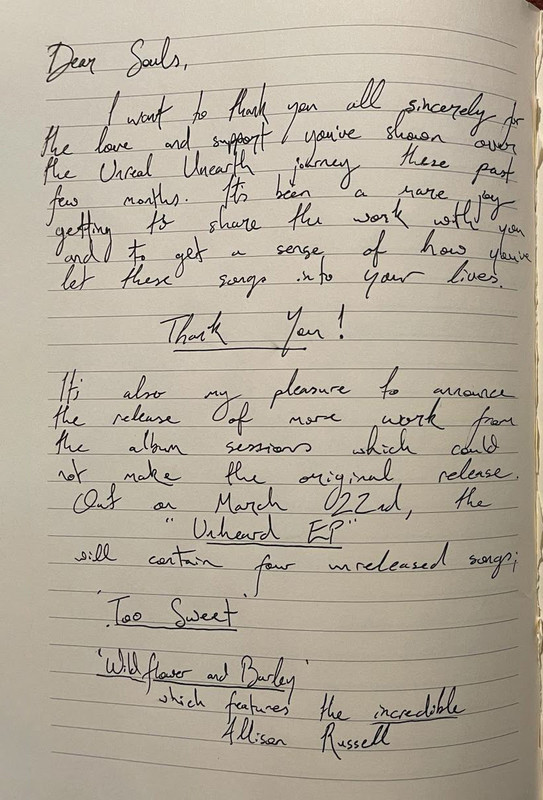 Dear Souls,
I want to thank you all sincerely for
the love and support you've shown over
the Unreal Unearth journey these past
few months. It's been a rare joy
getting to share the work with you
and to get a sense of how you've
let these songs into your lives.
Thank You!
It's also my pleasure to announce
the release of more work from
the album sessions which could
not make the original release.
Out on March 22nd, the
"Unheard EP"
will contain four unreleased songs;
'Too Sweet'
'Wildflower and Barley'
which features the incredible
Allison Russell